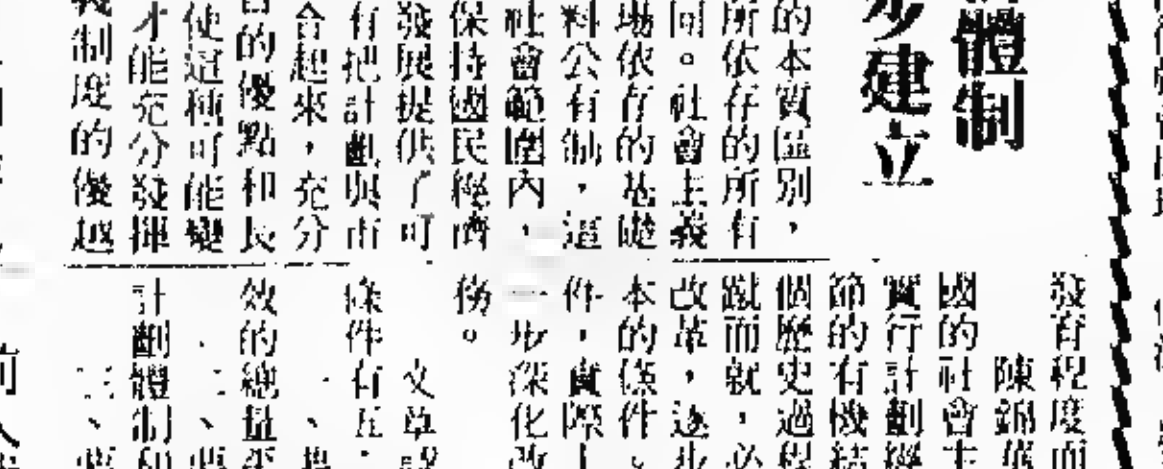 體制
步建立
的本質區別，
所依存的所有
同。社會主義
場依存的基礎
料公有制，這
社會範圍內，
保持國民經濟
發展提供了可
有把計劃與市
合起來，充分
的優點和長
使這種可能變
才能充分發揮
義制度的優越
發育程度而
陳錦華
國的社會主
實行計劃經
節的有機結
個歷史過程
蹴而就，必
改革，逐步
本的條件。
件，實際上
一步深化改
務。
文章認
條件有五：
一、
效的總量平
二、要
計劃體制和
三、要
前人